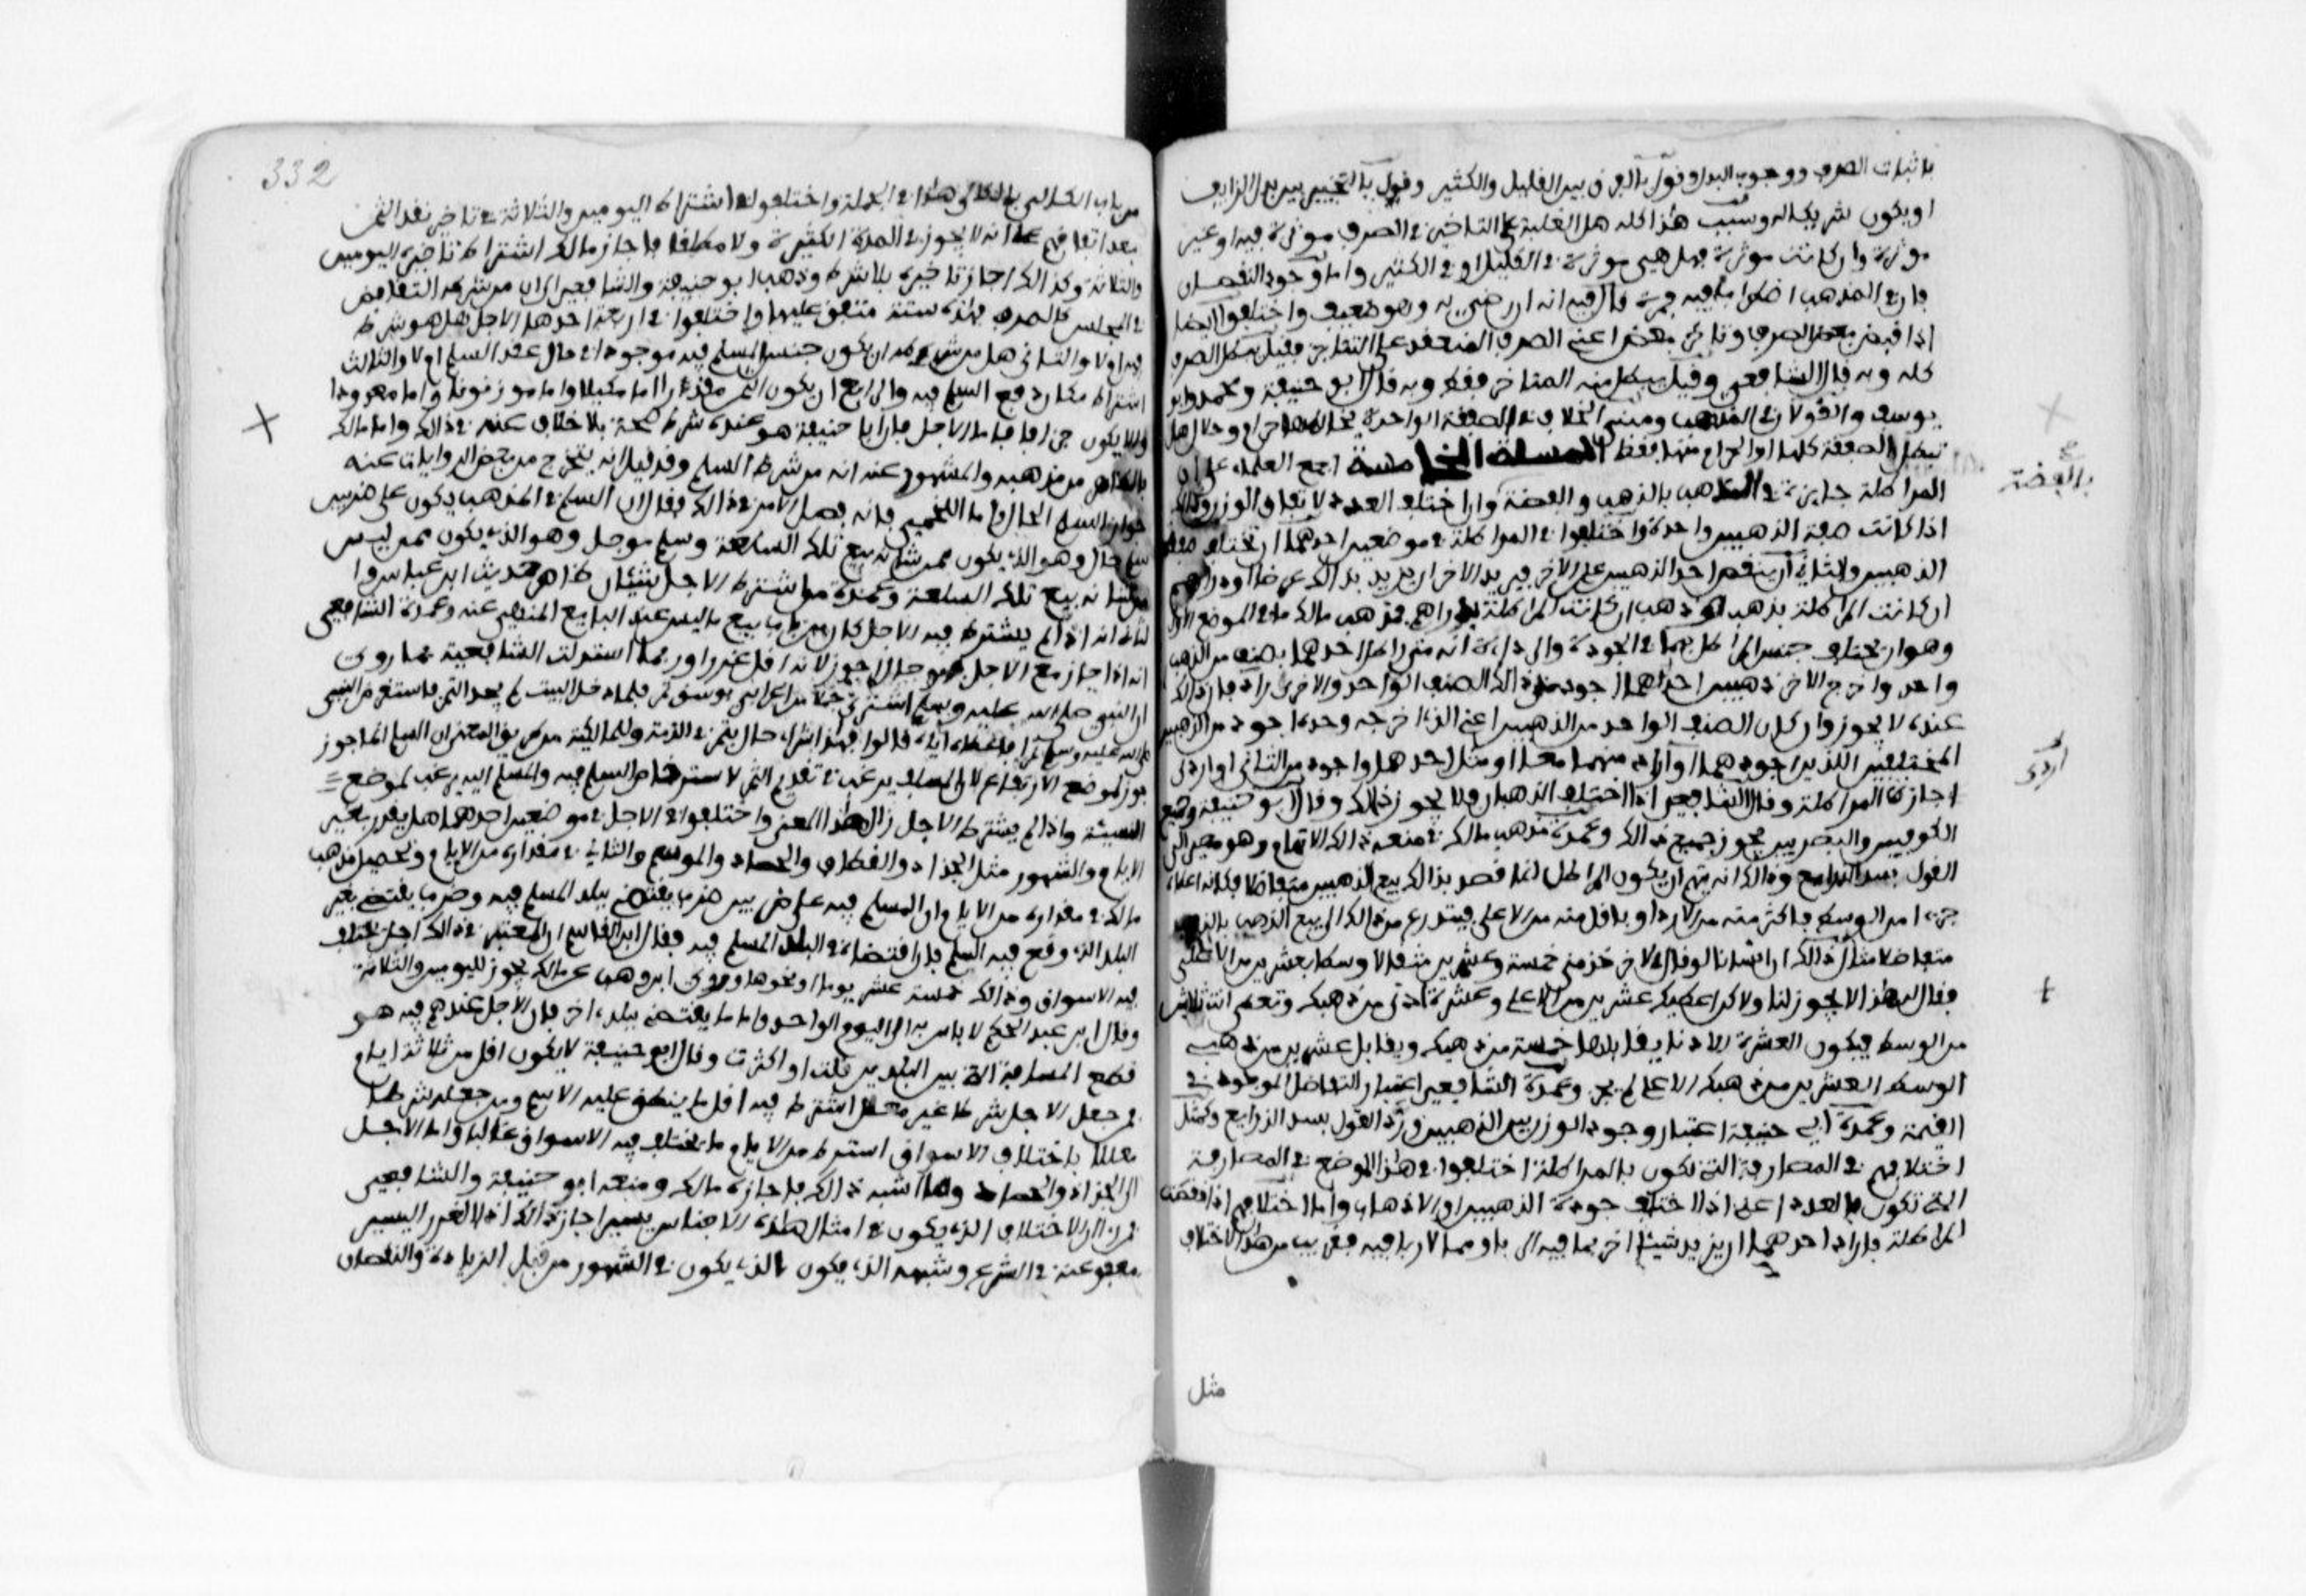 باثبات الصرف ووجوب البدل وقول بالفرق بين القليل والكثير وقول بالتخيير بين بدل الزايف
او يكون شريكا له وسبب هذا كله هل الغلبة على التاخير في الصرف موثرة فيه او غير
موثرة وان كانت موثرة فهل هي موثرة في القليل او في الكثير واما وجود النقصان
فان المذهب اضطرب فيه فمرة قال فيه انه ان رضي به وهو ضعيف واختلفوا ايضا
اذا قبض بعض الصرف وتاخر بعضه اعني الصرف المنعقد على التناجز فقيل يبطل الصرف
كله وبه قال الشافعي وقيل يبطل منه المتاخر فقط وبه قال ابو حنيفة ومحمد وابو
يوسف والقولان في المذهب ومبنى الخلاف في الصفقة الواحدة يخالطها حرام وحلال هل
تبطل الصفقة كلها او الحرام منها فقط المسلة الخامسة اجمع العلماء على ان
المراطلة جايزة في الذهب بالذهب والفضة وان اختلف العدد لا تفاق الوزن وذلك
بالفضة
اذا كانت صفة الذهبين واحدة واختلفوا في المراطلة في موضعين احدهما ان تختلف صفة
الذهبين والثاني ان ينقص احد الذهبين على الاخر فيريد الاخر ان يزيد بذلك عرضا او دراهم
ان كانت المراطلة بذهب او ذهب ان كانت المراطلة بدراهم فذهب مالك ما في الموضع الاول
وهو ان تختلف جنس المراطل بهما في الجودة والرداءة انه متى راطل احدهما بصنف من الذهب
واحد واخرج الاخر ذهبين احداهما اجود من ذلك الصنف الواحد والاخرى اردى فان ذلك
عنده لا يجوز وان كان الصنف الواحد من الذهبين اعني الذي اخرجه وحده اجود من الذهبين
المختلفين اللذين اجودهما او اردى منهما معا او مثل احدهما واجود من الثاني او اردى
اردى
اجازت المراطلة وقال الشافعي اذا اختلف الذهبان فلا يجوز ذلك وقال ابو حنيفة وجميع
الكوفيين والبصريين يجوز جميع ذلك وعمدة مذهب مالك في منعه ذلك الاتهام وهو مصير الى
القول بسد الذرايع وذلك انه يتهم ان يكون المراطل انما قصد بذلك بيع الذهبين متفاضلا فكانه اعطى
جزءا من الوسط باكثر منه من الاردا او باقل منه من الاعلى فيتدرع من ذلك الى بيع الذهب بالذهب
متفاضلا مثال ذلك ان انسانا لو قال لاخر خذ مني خمسة وعشرين مثقالا وسطا بعشرين من الاعلى
فقال له هذا لا يجوز لنا ولاكن اعطيك عشرين من الاعلى وعشرة ادنى من ذهبك وتعطيني انت ثلاثين
من الوسط فيكون العشرة الادنى يقابلها خمسة من ذهبك ويقابل عشرين من ذهب
الوسط العشرين من ذهبك الاعلى وعمدة الشافعي اعتبار التفاضل الموجود في
القيمة وعمدة ابي حنيفة اعتبار وجود الوزن بين الذهبين ورد القول بسد الذرايع وكمثل
اختلافهم في المصارفة التي تكون بالمراطلة اختلفوا في هذا الموضع في المصارفة
التي تكون بالعدد اعني اذا اختلف جودة الذهبين او الاذهاب واما اختلافهم اذا نقصت
المراطلة فاراد احدهما ان يزيد شيئا اخر مما فيه الربا او مما لا ربا فيه فقريب من هذا الاختلاف
مثل
332
من باب الكالي بالكالي هذا في الجملة واختلفوا في اشتراط اليومين والثلاثة في تاخير نقد الثمن
بعد اتفاقهم على انه لا يجوز في المدة الكثيرة ولا مطلقا فاجاز مالك اشتراط تاخير اليومين
والثلاثة وكذلك اجاز تاخيره بلا شرط وذهب ابو حنيفة والشافعي الى ان من شرطه التقابض
في المجلس كالصرف فهذه ستة متفق عليها واختلفوا في اربعة احدها الاجل هل هو شرط
فيه ام لا والثاني هل من شرطه ان يكون جنس المسلم فيه موجودا في حال عقد السلم ام لا والثالث
اشتراط مكان دفع المسلم فيه والرابع ان يكون الثمن مقدرا اما مكيلا واما موزونا واما معدودا
ولا يكون جزافا فاما الاجل فان ابا حنيفة هو عنده شرط صحة بلا خلاف عنه في ذلك واما مالك
فالظاهر من مذهبه والمشهور عنه انه من شرط السلم وقد قيل انه يتخرج من بعض الروايات عنه
جواز السلم الحال واما اللخمي فانه فصل الامر في ذلك فقال ان السلم في المذهب يكون على ضربين
سلم حال وهو الذي يكون ممن شانه بيع تلك السلعة وسلم موجل وهو الذي يكون ممن ليس
من شانه بيع تلك السلعة وعمدة من اشترط الاجل شيئان ظاهر حديث ابن عباس وا
لثاني انه اذا لم يشترط فيه الاجل كان من باب بيع ما ليس عند البايع المنهي عنه وعمدة الشافعي
انه اذا جاز مع الاجل فهو حالا اجوز لانه اقل غررا وربما استدلت الشافعية بما روى
ان النبي صلى الله عليه وسلم اشترى جملا من اعرابي بوسق تمر فلما دخل البيت لم يجد التمر فاستقرض النبي
صلى الله عليه وسلم تمرا فاعطاه اياه قالوا فهذا شراء حال بتمر في الذمة وللمالكية من طريق المعنى ان السلم انما جوز
جوز لموضع الارتفاق لان المسلف يرغب في تقديم الثمن لاسترخاص المسلم فيه والمسلم اليه يرغب لموضع
النسيئة واذا لم يشترط الاجل زال هذا المعنى واختلفوا في الاجل في موضعين احدهما هل يقدر بغير
الايام والشهور مثل الجذاذ والقطاف والحصاد والموسم والثاني في مقداره من الايام وتحصيل مذهب
مالك في مقداره من الايام ان المسلم فيه على ضربين ضرب يقتضى ببلد المسلم فيه وضرب يقتضى بغير
البلد الذي وقع فيه السلم فان اقتضاه في البلد المسلم فيه فقال ابن القاسم ان المعتبر في ذلك اجل تختلف
فيه الاسواق وذلك خمسة عشر يوما او نحوها وروى ابن وهب عن مالك يجوز لليومين والثلاثة
وقال ابن عبد الحكم لا باس به الى اليوم الواحد واما ما يقتضى ببلد اخر فان الاجل عندهم فيه هو
قطع المسافة التي بين البلدين قلت او كثرت وقال ابو حنيفة لا يكون اقل من ثلاثة ايام
فمن جعل الاجل شرطا غير معلل اشترط فيه اقل ما ينطلق عليه الاسم ومن جعله شرطا
معللا باختلاف الاسواق اشترط من الايام ما تختلف فيه الاسواق غالبا واما الاجل
الى الجذاذ والحصاد وما اشبه ذلك فاجازه مالك ومنعه ابو حنيفة والشافعي
فمن راى الاختلاف الذي يكون في امثال هذه الاجناس يسير اجاز ذلك اذ الغرر اليسير
معفو عنه في الشرع وشبهه الذي يكون بالذي يكون في الشهور من قبل الزيادة والنقصان